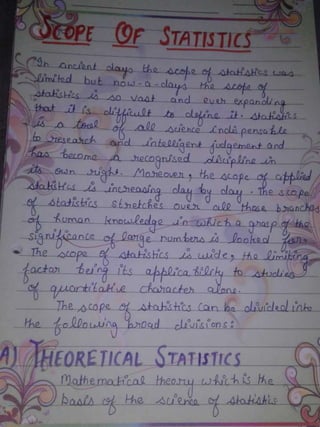 SCOPE OF STATISTICS
In ancient days the scope of statistics was
limited but now-a-days the scope of
statistics is so vast and ever expanding
that it is difficult to define it. Statistics
is a tool of all science indispensable
to research and intelligent judgement and
has become a recognised discipline in
its own right. Moreover, the scope of applied
statistics is increasing day by day. The scope
of statistics stretches over all those branches
of human knowledge in which a grasp of the
significance of large numbers is looked for.
The scope of statistics is wide, the limiting
factor being its applicability to studies
of quantitative character alone.
The scope of statistics can be divided into
the following broad divisions:
A) THEORETICAL STATISTICS
Mathematical theory which is the
basis of the science of statistics